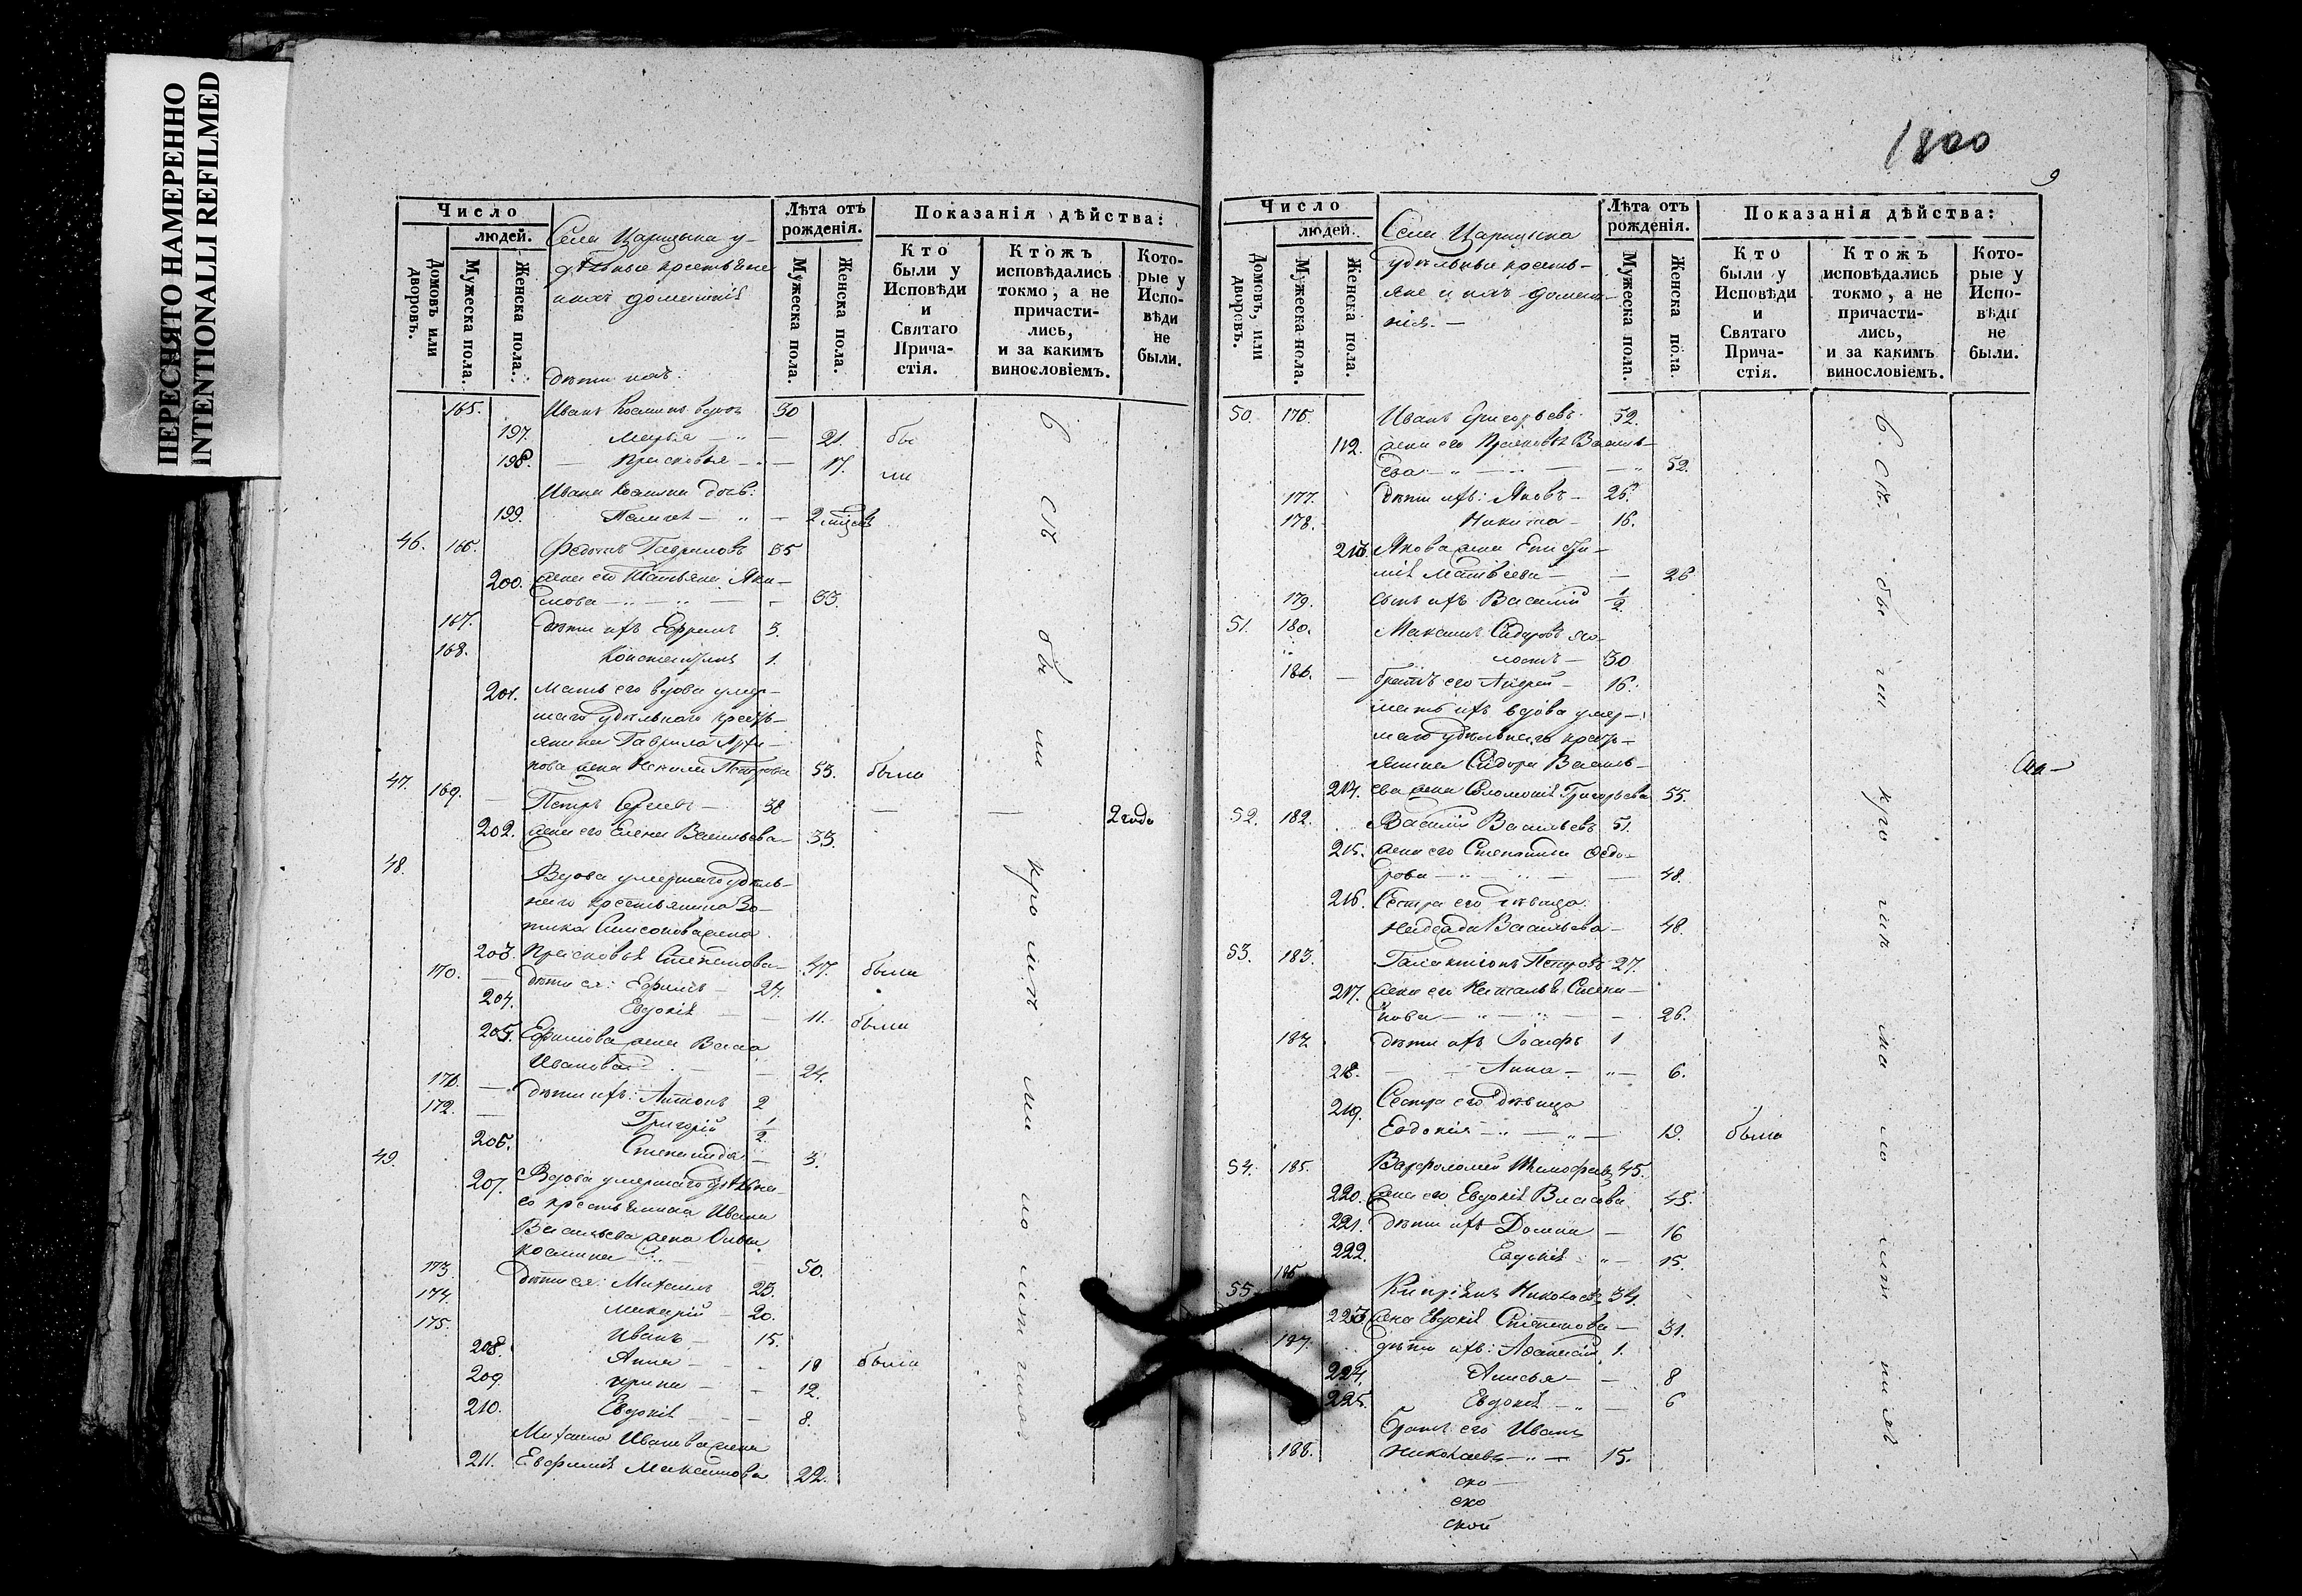 ПЕРЕСНЯТО НАМЕРЕННО
INTENTIONALLI REFILMED
Число
людей.
Домовъ или дворовъ.
Мужеска пола.
Женска пола.
Села Царицына у-
дѣльные крестьяне
и ихъ домашнія
дѣти ихъ:
Лѣта отъ рожденія.
Мужеска пола.
Женска пола.
Показанія дѣйства:
Кто были у Исповѣди и Святаго Прича-стія.
Ктожъ исповѣдались токмо, а не причасти-лись, и за какимъ винословіемъ.
Кото-рые у Испо-вѣди не были.
165. Иванъ Косминъ вдовъ 30
197. Марья 21. бы
198. Прасковья 17. ли
Ивана Космина дочь:
199. 2
46. 166. Федотъ Гавриловъ 35
200. жена его Татьяна Яки-
мова 33.
167. дѣти ихъ Ефремъ 3.
168. Константинъ 1.
201. мать его вдова умер-
шаго удѣльнаго кресть-
янина Гаврила
жена Петрова 53. была
47. 169. Петръ Сергѣевъ 38 2 года
202. жена его Елена Васильева 33.
48. Вдова умершаго удѣль-
наго крестьянина Зо-
тика жена
203. Прасковья Степанова 47. была
170. дѣти ея: Ефимъ 24.
204. Евдокія 11. была
205. Ефимова жена Васса
Иванова 24.
171. дѣти ихъ: Антонъ 2
172. Григорій 1/2
206. Степанида 3.
49. 207. Вдова умершаго удѣльна-
го крестьянина Ивана
Васильева жена
Космина 50.
173. дѣти ея: Михаилъ 23.
174. Макарій 20.
175. Иванъ 15.
208. Анна 18 была
209. Ирина 12.
210. Евдокія 8.
Михаила Иванова жена
211. Евфимія Максимова 22.
1800
9
Число
людей.
Домовъ, или дворовъ.
Мужеска пола.
Женска пола.
Села Царицына
удѣльные кресть-
яне и ихъ домаш-
нія.
Лѣта отъ рожденія.
Мужеска пола.
Женска пола.
Показанія дѣйства:
Кто были у Исповѣди и Святаго Прича-стія.
Ктожъ исповѣдались токмо, а не причасти-лись, и за какимъ винословіемъ.
Кото-рые у Испо-вѣди не были.
50. 176. Иванъ Григорьевъ 52.
112. жена его Прасковья Василь-
ева 52.
177. дѣти ихъ: Яковъ 26.
178. Никита 16.
213. Якова жена Евфи-
мія Матвѣева 26
179. сынъ ихъ Василій 1/2
51. 180. Максимъ Сидоровъ хо-
лостъ 30
181. братъ его Андрей 16.
мать ихъ вдова умер-
шаго удѣльнаго кресть-
янина Сидора Василь-
214. ева жена Соломонія Григорьева 55.
52. 182. Василій Васильевъ 51.
215. жена его Степанида Ѳедо-
рова 48.
216. Сестра его дѣвица
Васильева 48.
53. 183. Галактіонъ Петровъ 27.
217. жена его Наталья Степа-
нова 26.
184. дѣти ихъ Іосифъ 1
218. Анна 6.
219. Сестра его дѣвица
Евдокія 19. была
54. 185. Варфоломей Тимофѣевъ 45.
220. жена его Евдокія Власова 45.
221. дѣти ихъ Домна 16
222. Евдокія 15.
55. 186 Кипріянъ Николаевъ 34.
223 жена Евдокія Степанова 31.
187. дѣти ихъ: Аѳанасій 1.
224. Анисья 8
225. Евдокія 6
братъ его Иванъ
188. Николаевъ 15.
ско
ско
ской